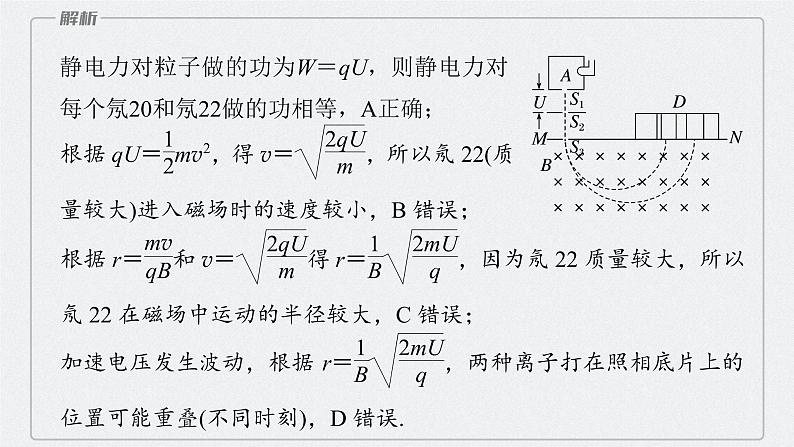 解析
静电力对粒子做的功为W＝qU，则静电力对
每个氖20和氖22做的功相等，A正确；
根据 qU＝\frac{1}{2}mv²，得 v＝\sqrt{\frac{2qU}{m}}，所以氖 22(质
量较大)进入磁场时的速度较小，B 错误；
根据 r＝\frac{mv}{qB}和 v＝\sqrt{\frac{2qU}{m}}得 r＝\frac{1}{B}\sqrt{\frac{2mU}{q}}，因为氖 22 质量较大，所以
氖 22 在磁场中运动的半径较大，C 错误；
加速电压发生波动，根据 r＝\frac{1}{B}\sqrt{\frac{2mU}{q}}，两种离子打在照相底片上的
位置可能重叠(不同时刻)，D 错误.
A
U S₁ D
S₂
M S₃ N
B × × × × × × ×
× × × × × × ×
× × × × × × ×